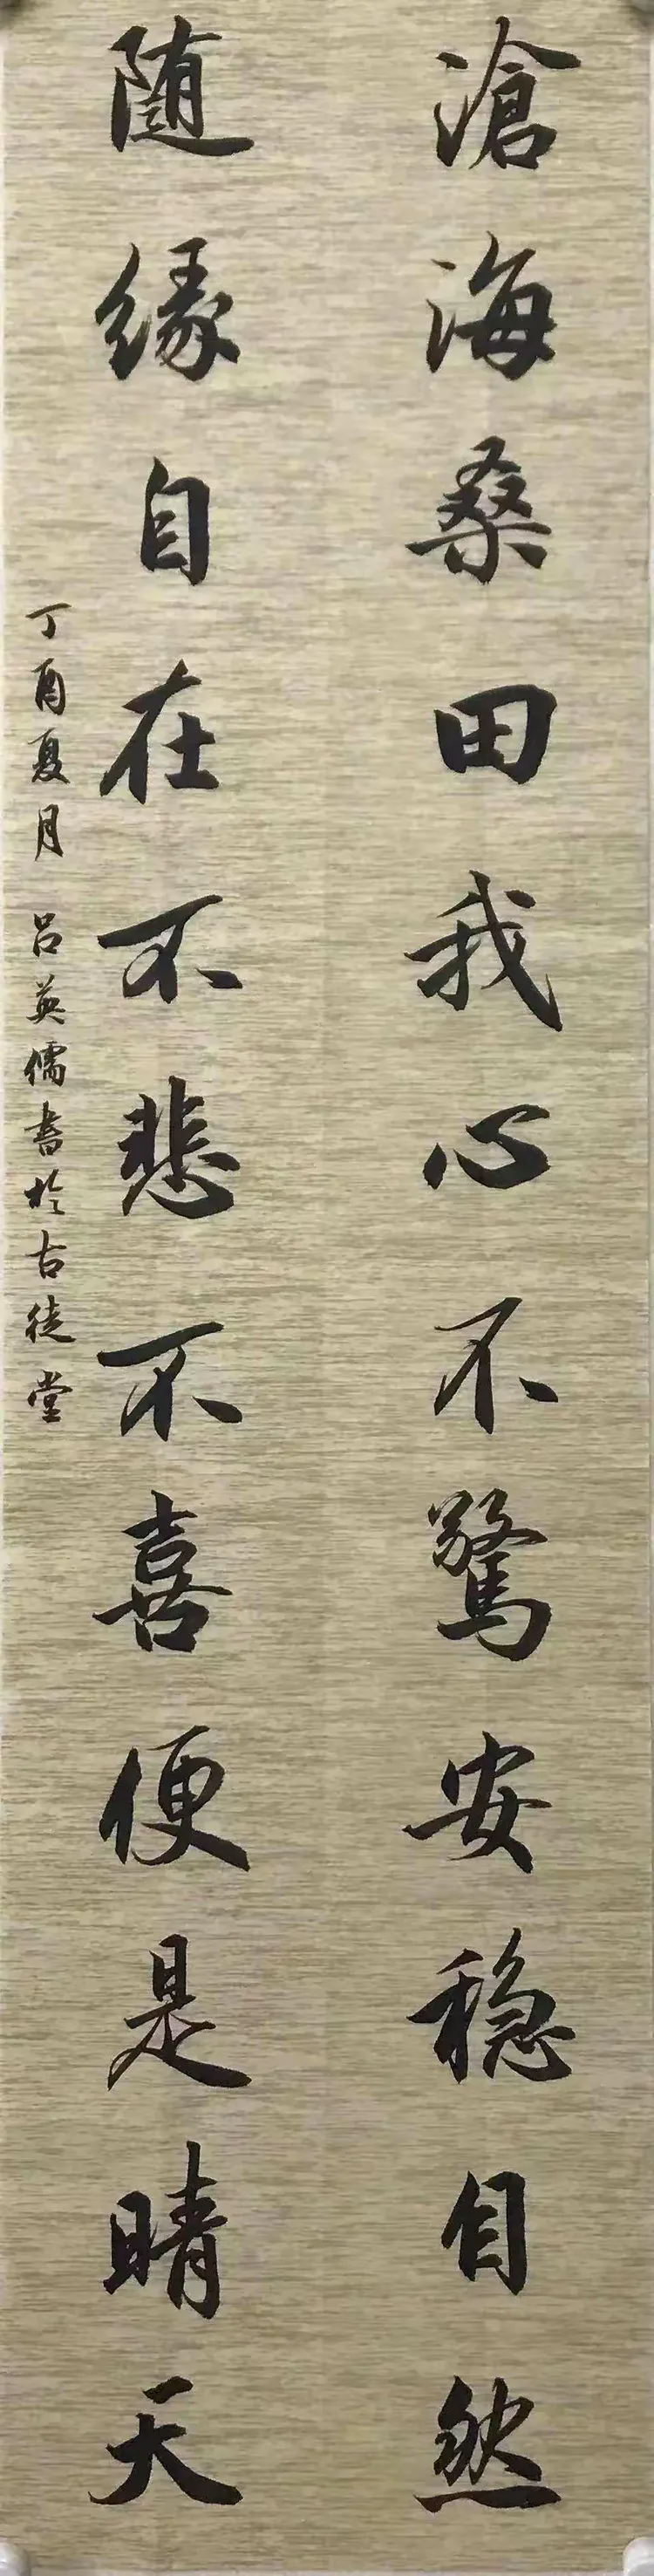 滄海桑田我心不驚安穩自然
随缘自在不悲不喜便是晴天
丁酉夏月 吕英儒書於古徒堂